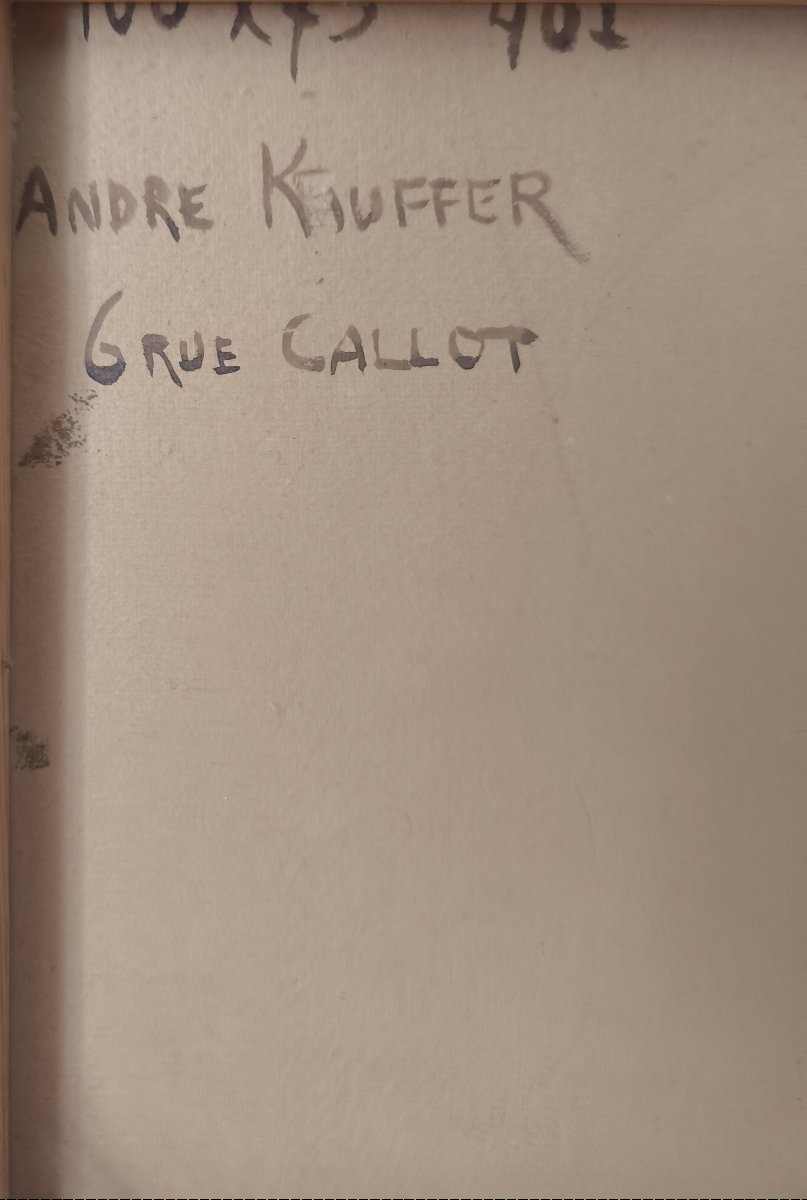 100 X 73 401
ANDRE KAUFFER
6 RUE CALLOT